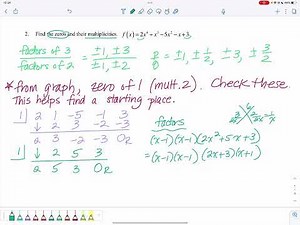 2. Find the zeros and their multiplicities. f(x) = 2x⁴ + x³ - 5x² - x + 3
factors of 3 = ±1, ±3
factors of 2 ±1, ±2
P/Q = ±1, ±1/2, ±3, ±3/2
* from graph, zero of 1 (mult. 2). Check these.
This helps find a starting place.
1| 2 1 -5 -1 3
↓ 2 3 -2 -3
2 3 -2 -3 0R
1| ↓ 2 5 3
2 5 3 0R
factors
(x-1)(x-1)(2x²+5x+3)
=(x-1)(x-1)(2x+3)(x+1)